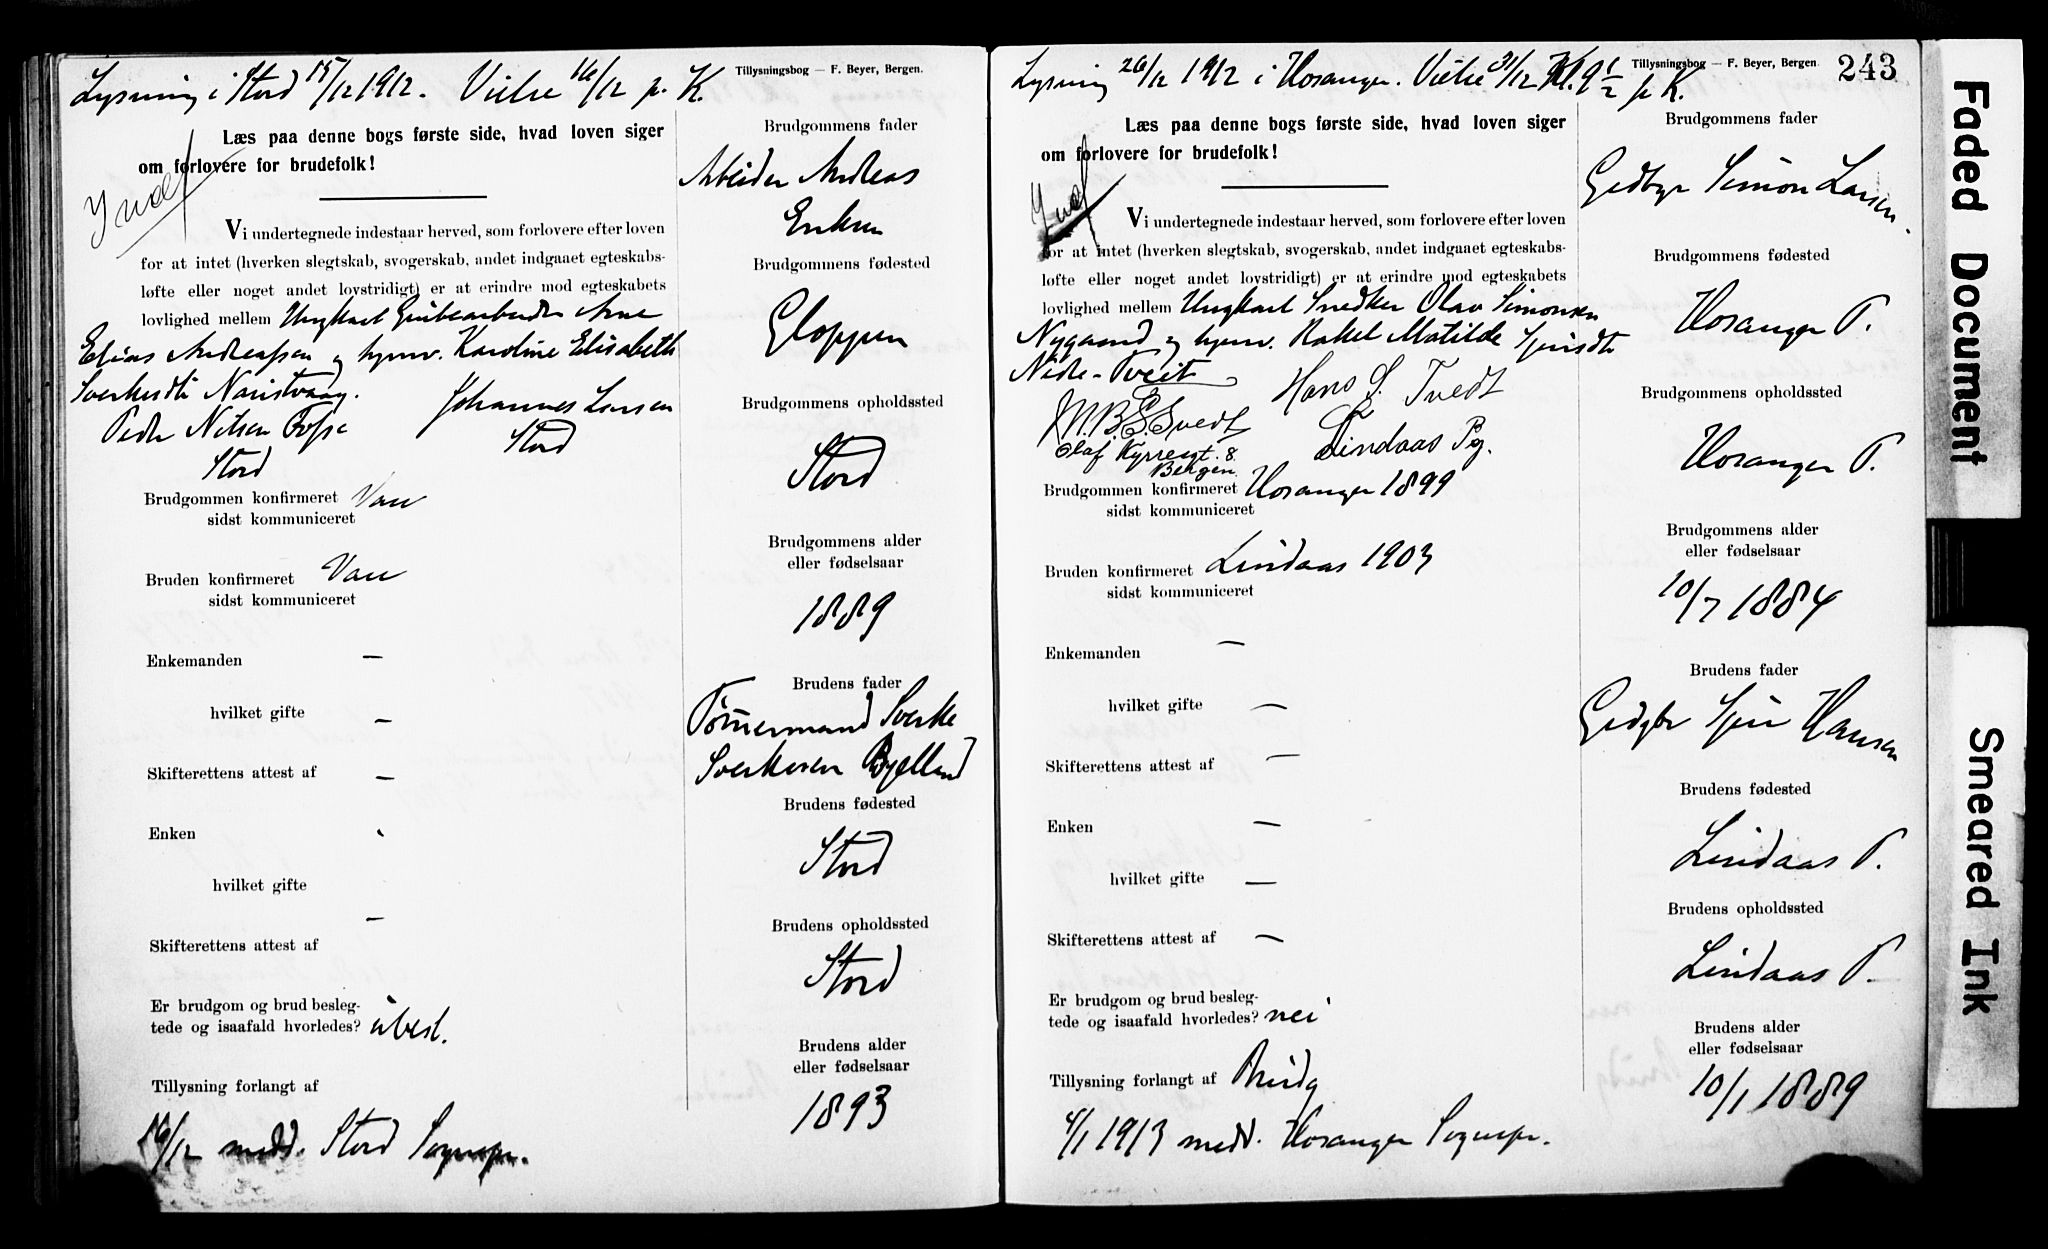 Lysning i Stord 15/12 1912. Vielse 16/12 p. K.
Tillysningsbog — F. Beyer, Bergen.
Læs paa denne bogs første side, hvad loven siger
om forlovere for brudefolk!
Vi undertegnede indestaar herved, som forlovere efter loven
for at intet (hverken slegtskab, svogerskab, andet indgaaet egteskabs-
løfte eller noget andet lovstridigt) er at erindre mod egteskabets
lovlighed mellem Ungkarl Grubearbeider Arne
Elias Andreassen og pigen Karoline Elisabeth
Sverkesdtr
Peder Nilsen Fosse
Stord
Johannes Larsen
Stord
Brudgommen konfirmeret Van
sidst kommuniceret
Bruden konfirmeret Van
sidst kommuniceret
Enkemanden —
hvilket gifte —
Skifterettens attest af —
Enken
hvilket gifte
—
Skifterettens attest af
Er brudgom og brud besleg-
tede og isaafald hvorledes? ubesl.
Tillysning forlangt af
16/12 medd. Stord Sognepr.
Brudgommens fader
Arbeider Andreas
Eriksen
Brudgommens fødested
Gloppen
Brudgommens opholdssted
Stord
Brudgommens alder
eller fødselsaar
1889
Brudens fader
Tømmermand Sverke
Sverkesen Bjelland
Brudens fødested
Stord
Brudens opholdssted
Stord
Brudens alder
eller fødselsaar
1893
Lysning 26/12 1912 i Hosanger. Vielse 31/12 Kl. 9 1/2 p K.
Tillysningsbog — F. Beyer, Bergen.
243
Læs paa denne bogs første side, hvad loven siger
om forlovere for brudefolk!
Vi undertegnede indestaar herved, som forlovere efter loven
for at intet (hverken slegtskab, svogerskab, andet indgaaet egteskabs-
løfte eller noget andet lovstridigt) er at erindre mod egteskabets
lovlighed mellem Ungkarl Snedker Olav Simonsen
Nygaard og pigen Rakel Matilde Sjursdtr
Nedre-Tveit
Hans S. Tvedt
Lindaas Pg.
Olaf Kyrresgt. 8
Bergen.
Brudgommen konfirmeret Hosanger 1899
sidst kommuniceret
Bruden konfirmeret Lindaas 1903
sidst kommuniceret
Enkemanden —
hvilket gifte —
Skifterettens attest af —
Enken —
hvilket gifte —
Skifterettens attest af —
Er brudgom og brud besleg-
tede og isaafald hvorledes? nei
Tillysning forlangt af Brudg
4/1 1913 medd. Hosanger Sognepr.
Brudgommens fader
Grdbgr Simon Larsen.
Brudgommens fødested
Hosanger P.
Brudgommens opholdssted
Hosanger P.
Brudgommens alder
eller fødselsaar
10/7 1884
Brudens fader
Grdgbr Sjur Hansen
Brudens fødested
Lindaas P.
Brudens opholdssted
Lindaas P.
Brudens alder
eller fødselsaar
10/1 1889
Faded Document
Smeared Ink